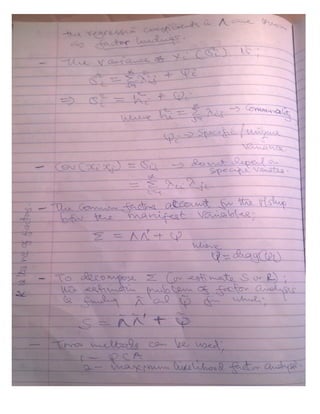 the regression coefficients in Λ are known
as factor loadings.
- The variance of xi (σi²) is;
σi² = Σ λij² + ψi
⇒ σi² = hi² + ψi
where hi² = Σ λij² → communality
ψi → Specific/unique
variance
- Cov(xi xj) = σij → do not depend on
specific variates
= Σ λik λjk
- The common factors account for the r/ship
b/w the manifest variables;
Σ = ΛΛ' + ψ
where
ψ = diag(ψi)
- To decompose Σ (or estimate S or R);
the estimation problem of factor analysis
is finding Λ̂ and ψ̂ for which
S = Λ̂Λ̂' + ψ̂
- Two methods can be used;
1 - PCA
2 - Maximum likelihood factor analysis.